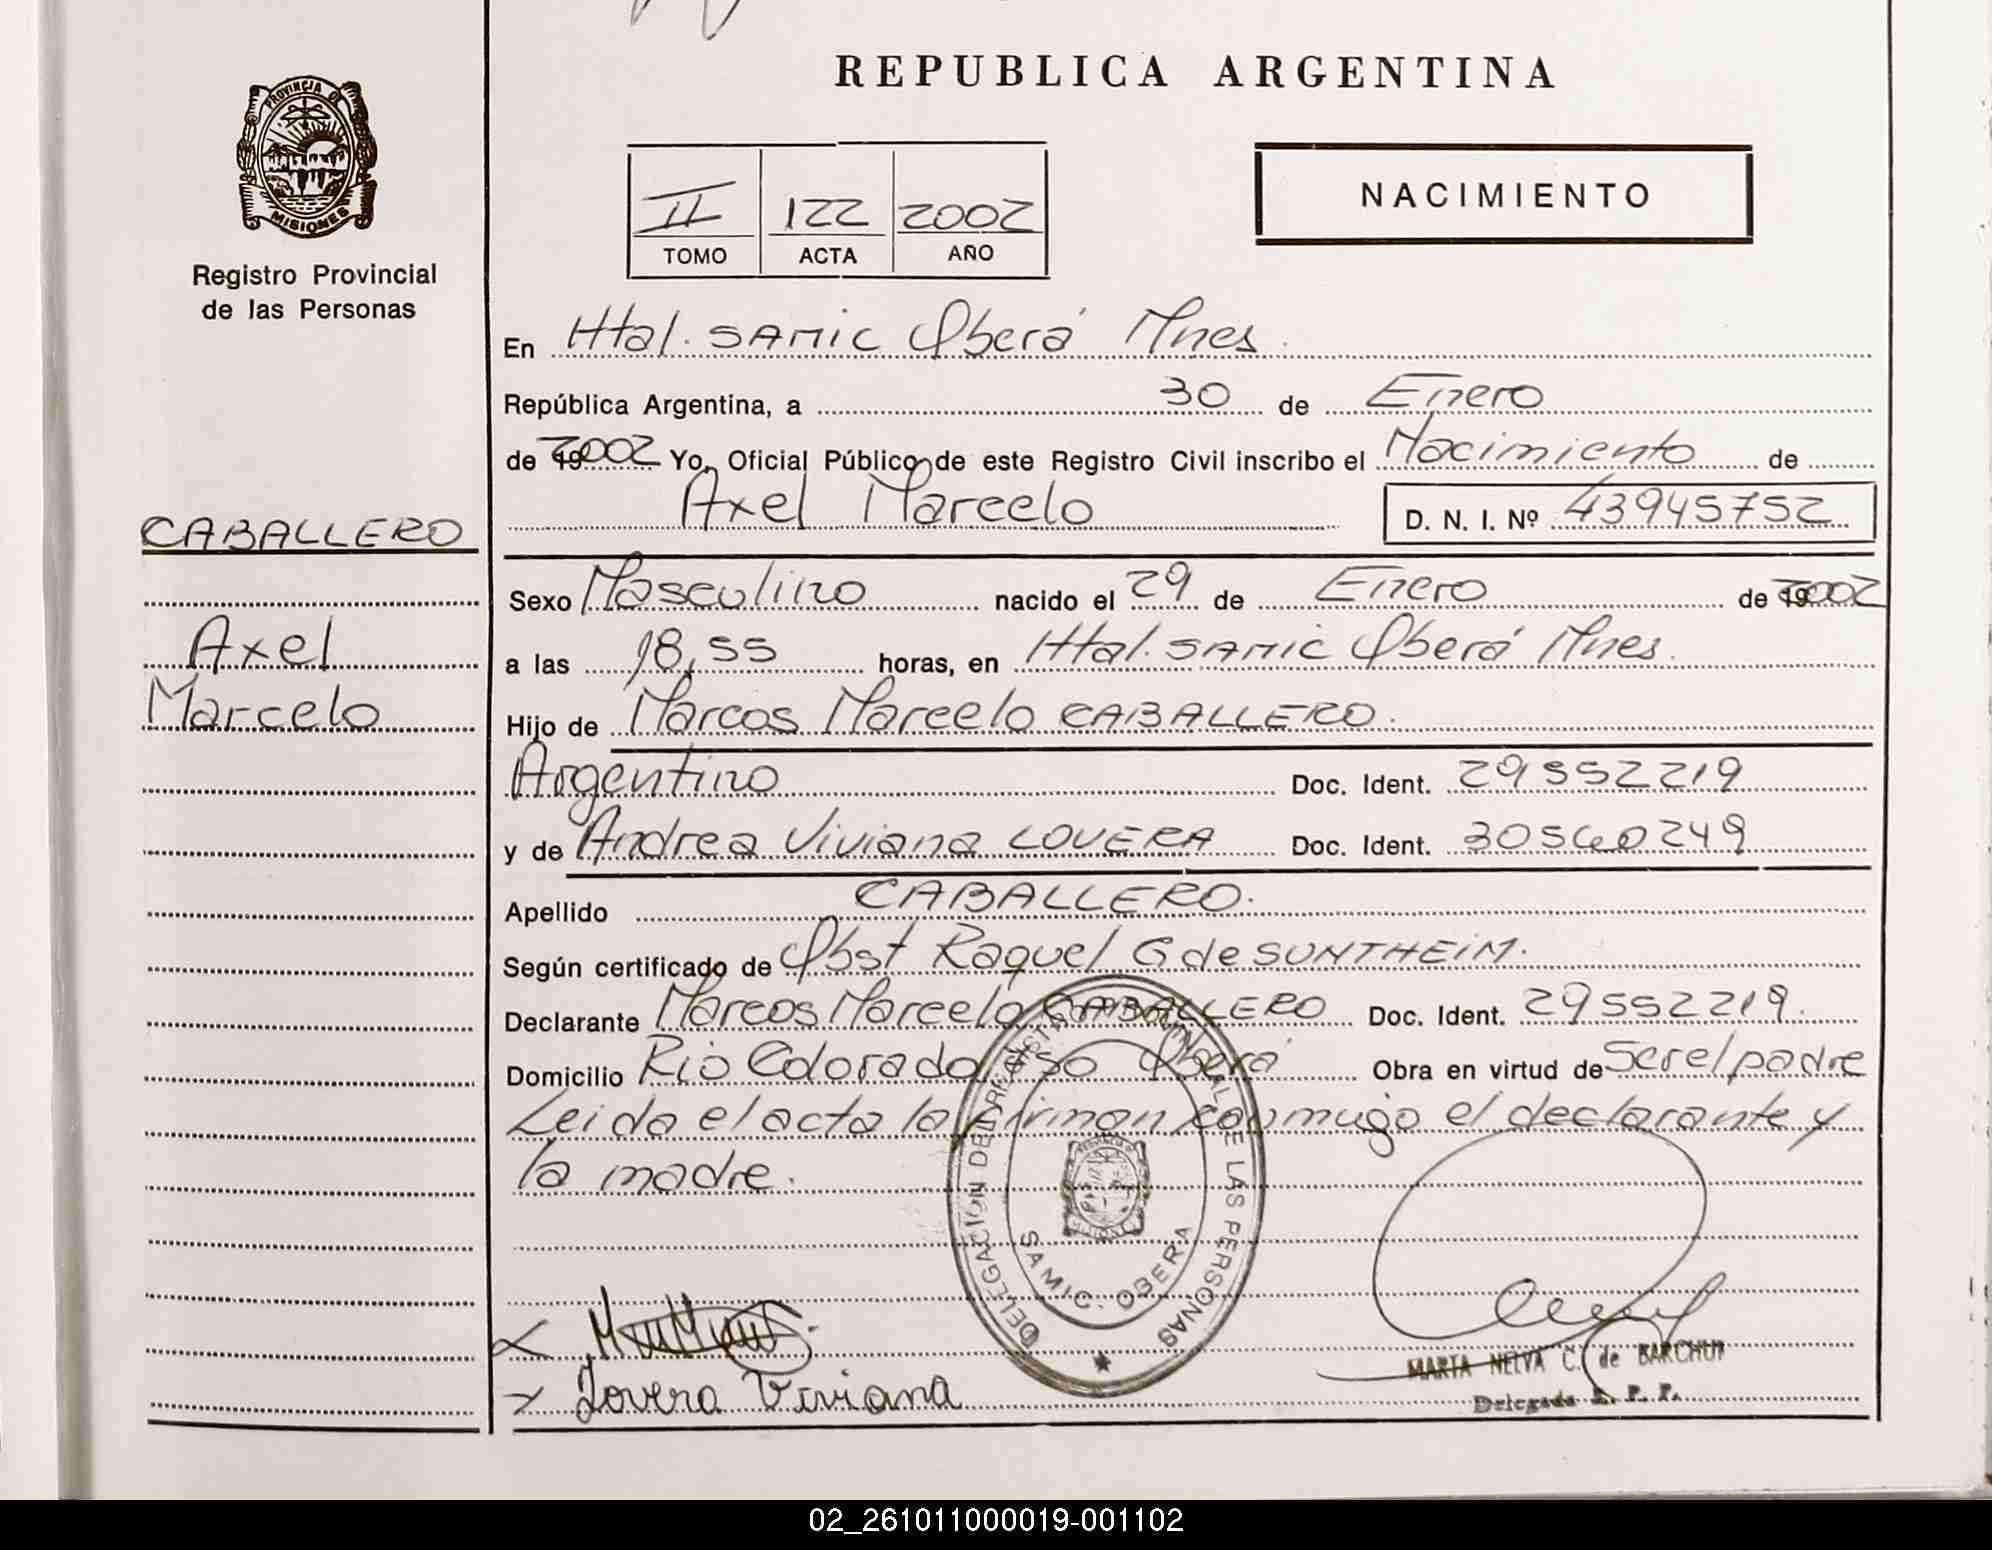 REPUBLICA ARGENTINA
PROVINCIA DE
MISIONES
Registro Provincial
de las Personas
II 122 2002
TOMO ACTA AÑO
NACIMIENTO
En Htal. SAMIC Oberá Mnes.
República Argentina, a 30 de Enero
de 2002 Yo, Oficial Público de este Registro Civil inscribo el Nacimiento de
Axel Marcelo D. N. I. Nº 43945752
CABALLERO
Axel
Marcelo
Sexo Masculino nacido el 29 de Enero de 2002
a las 18,55 horas, en Htal. SAMIC Oberá Mnes.
Hijo de Marcos Marcelo CABALLERO.
Argentino Doc. Ident. 29552219
y de Andrea Viviana LOVERA Doc. Ident. 30560249
Apellido CABALLERO.
Según certificado de Obst Raquel G de SUNTHEIM.
Declarante Marcos Marcelo CABALLERO Doc. Ident. 29552219.
Domicilio Rio Colorado Oberá Obra en virtud de Ser el padre
Leida el acta la firman conmigo el declarante y
la madre.
DELEGACION DEL REGISTRO PROVINCIAL DE LAS PERSONAS
SAMIC. OBERA
Lovera Viviana
MARTA NELVA C. de BARCHUK
Delegada R. P. P.
02_261011000019-001102